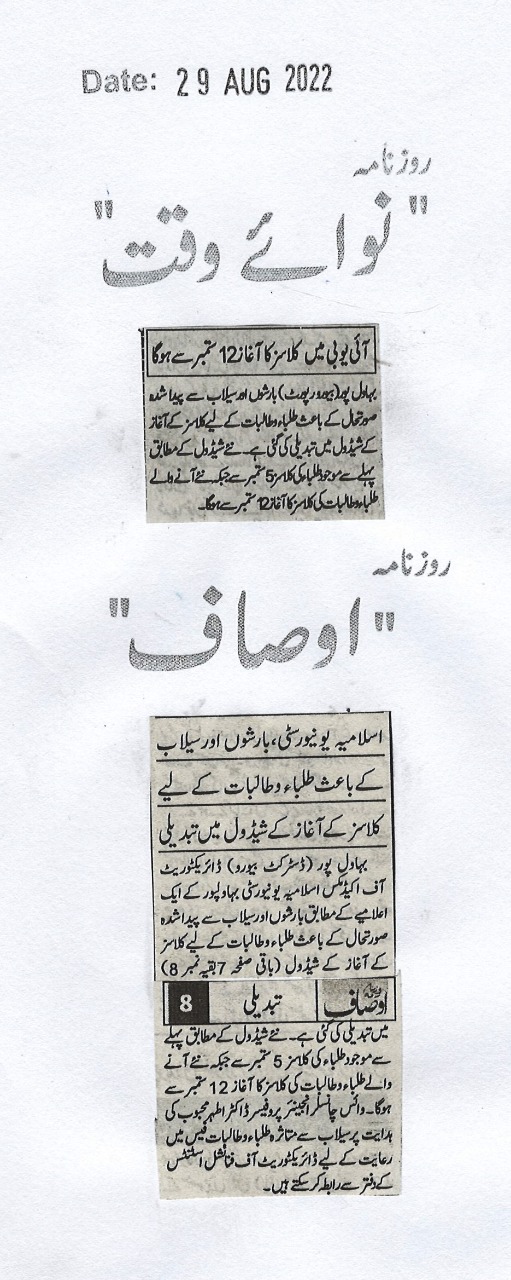 Date: 29 AUG 2022
روزنامہ
"نوائے وقت"
آئی یو بی میں کلاسز کا آغاز 12 ستمبر سے ہوگا
بہاول پور (بیورورپورٹ) بارشوں اور سیلاب سے پیدا شدہ
صورتحال کے باعث طلباء وطالبات کے لیے کلاسز کے آغاز
کے شیڈول میں تبدیلی کی گئی ہے۔ نئے شیڈول کے مطابق
پہلے سے موجود طلباء کی کلاسز 5 ستمبر سے جبکہ نئے آنے والے
طلباء وطالبات کی کلاسز کا آغاز 12 ستمبر سے ہوگا۔
روزنامہ
"اوصاف"
اسلامیہ یونیورسٹی، بارشوں اور سیلاب
کے باعث طلباء وطالبات کے لیے
کلاسز کے آغاز کے شیڈول میں تبدیلی
بہاول پور (ڈسٹرکٹ بیورو) ڈائریکٹوریٹ
آف اکیڈمکس اسلامیہ یونیورسٹی بہاولپور کے ایک
اعلامیے کے مطابق بارشوں اور سیلاب سے پیدا شدہ
صورتحال کے باعث طلباء وطالبات کے لیے کلاسز
کے آغاز کے شیڈول (باقی صفحہ 7 بقیہ نمبر 8)
اوصاف تبدیلی 8
میں تبدیلی کی گئی ہے۔ نئے شیڈول کے مطابق پہلے
سے موجود طلباء کی کلاسز 5 ستمبر سے جبکہ نئے آنے
والے طلباء وطالبات کی کلاسز کا آغاز 12 ستمبر سے
ہوگا۔ وائس چانسلر انجینئر پروفیسر ڈاکٹر اطہر محبوب کی
ہدایت پر سیلاب سے متاثرہ طلباء وطالبات فیس میں
رعایت کے لیے ڈائریکٹوریٹ آف فنانشل اسسٹنس
کے دفتر سے رابطہ کر سکتے ہیں۔